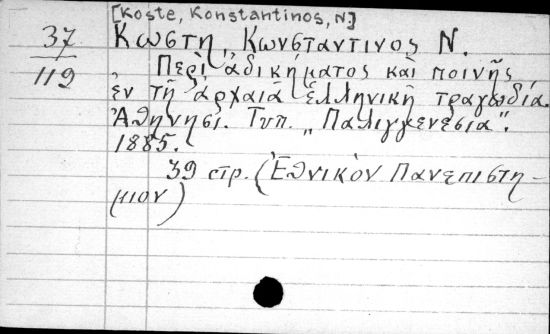 [Koste, Konstantinos, N.]
37 Κωστη, Κωνσταντινος Ν.
112 Περὶ ἀδικήματος καὶ ποινῆς
ἐν τῇ ἀρχαίᾳ ἑλληνικῇ τραγῳδίᾳ.
Ἀθήνησι. Τυπ. „Παλιγγενεσια".
1885.
39 стр. (Ἐθνικὸν Πανεπιστη-
μιον)